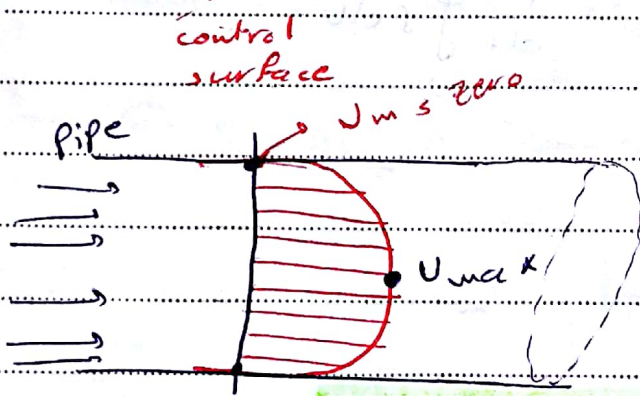 control
surface
Vm s zero
pipe
Umax